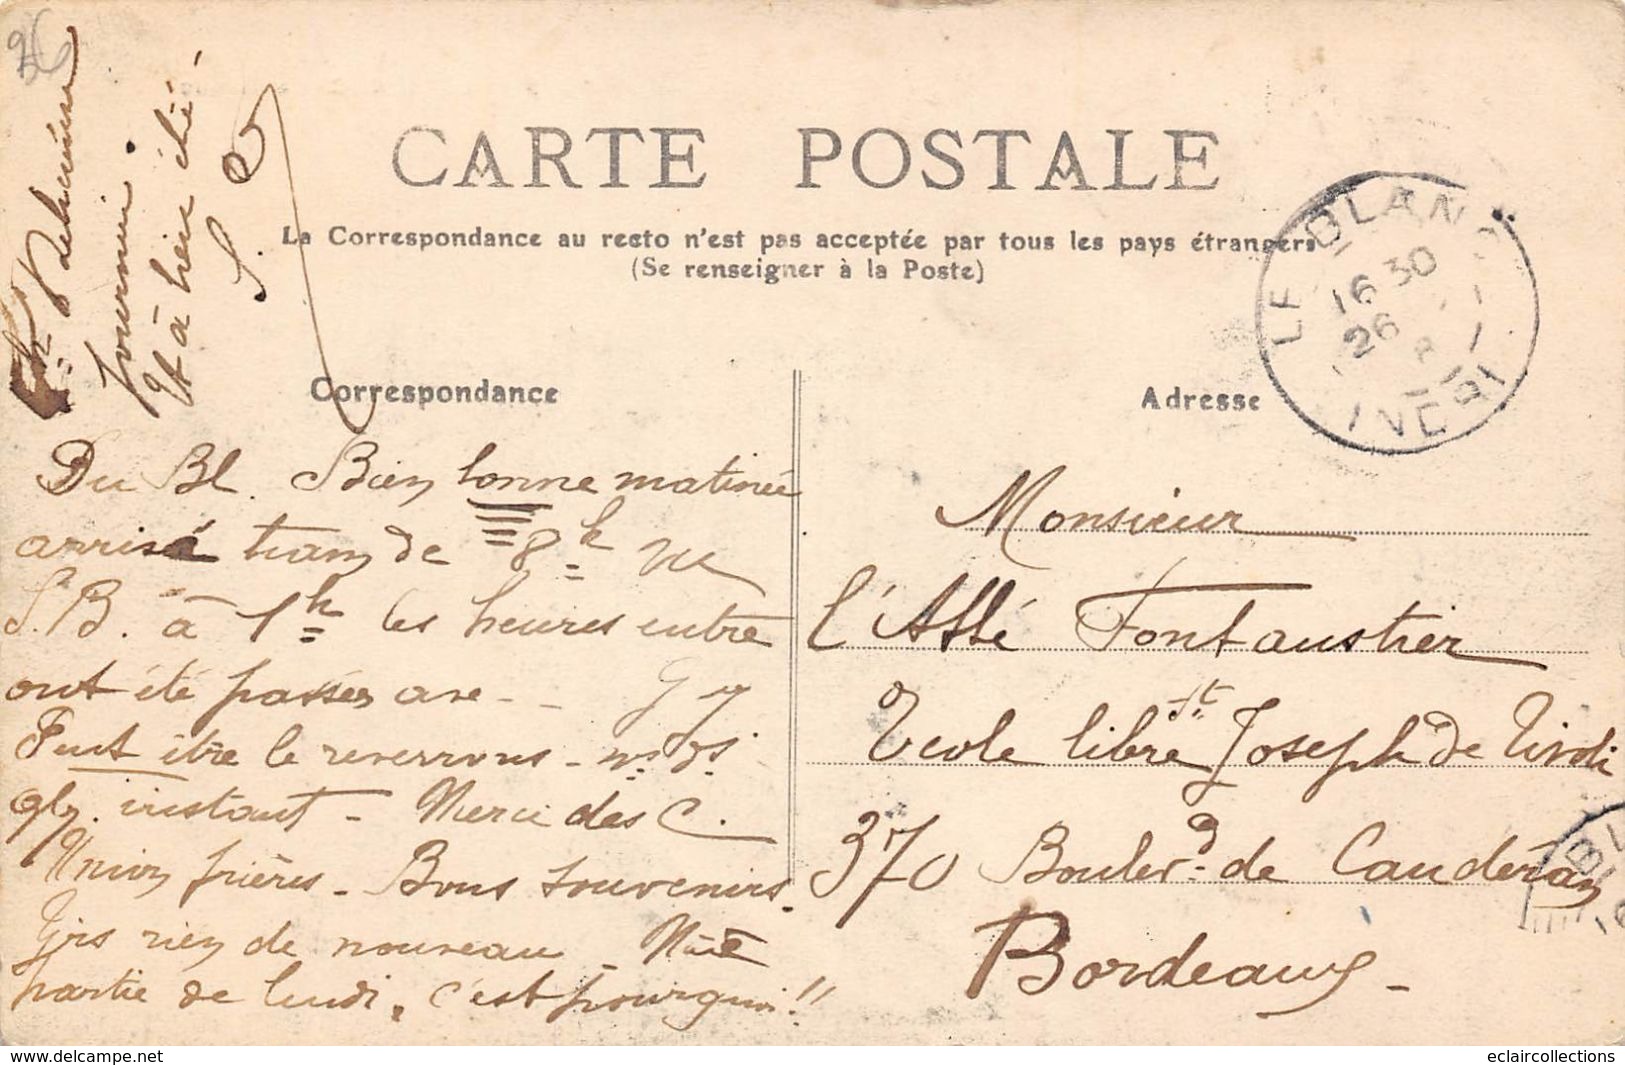 26
CARTE POSTALE
La Correspondance au recto n'est pas acceptée par tous les pays étrangers
(Se renseigner à la Poste)
Correspondance
Adresse
LE BLANC
16 30
26
INDRE
fourmi.
Et à hier été
Du Bl. Bien bonne matinée
arrivé train de 8h
S.B. à 1h les heures entre
ont été passées avec
Peut être le reverrons
instant - Merci des C.
Union prières - Bons souvenirs.
Tjrs rien de nouveau -
partie de lundi, c'est pourquoi !!
Monsieur
l'Abbé Fontaustier
Ecole libre St Joseph de Tivoli
370 Boulevd de Caudéran
Bordeaux -
www.delcampe.net
eclaircollections